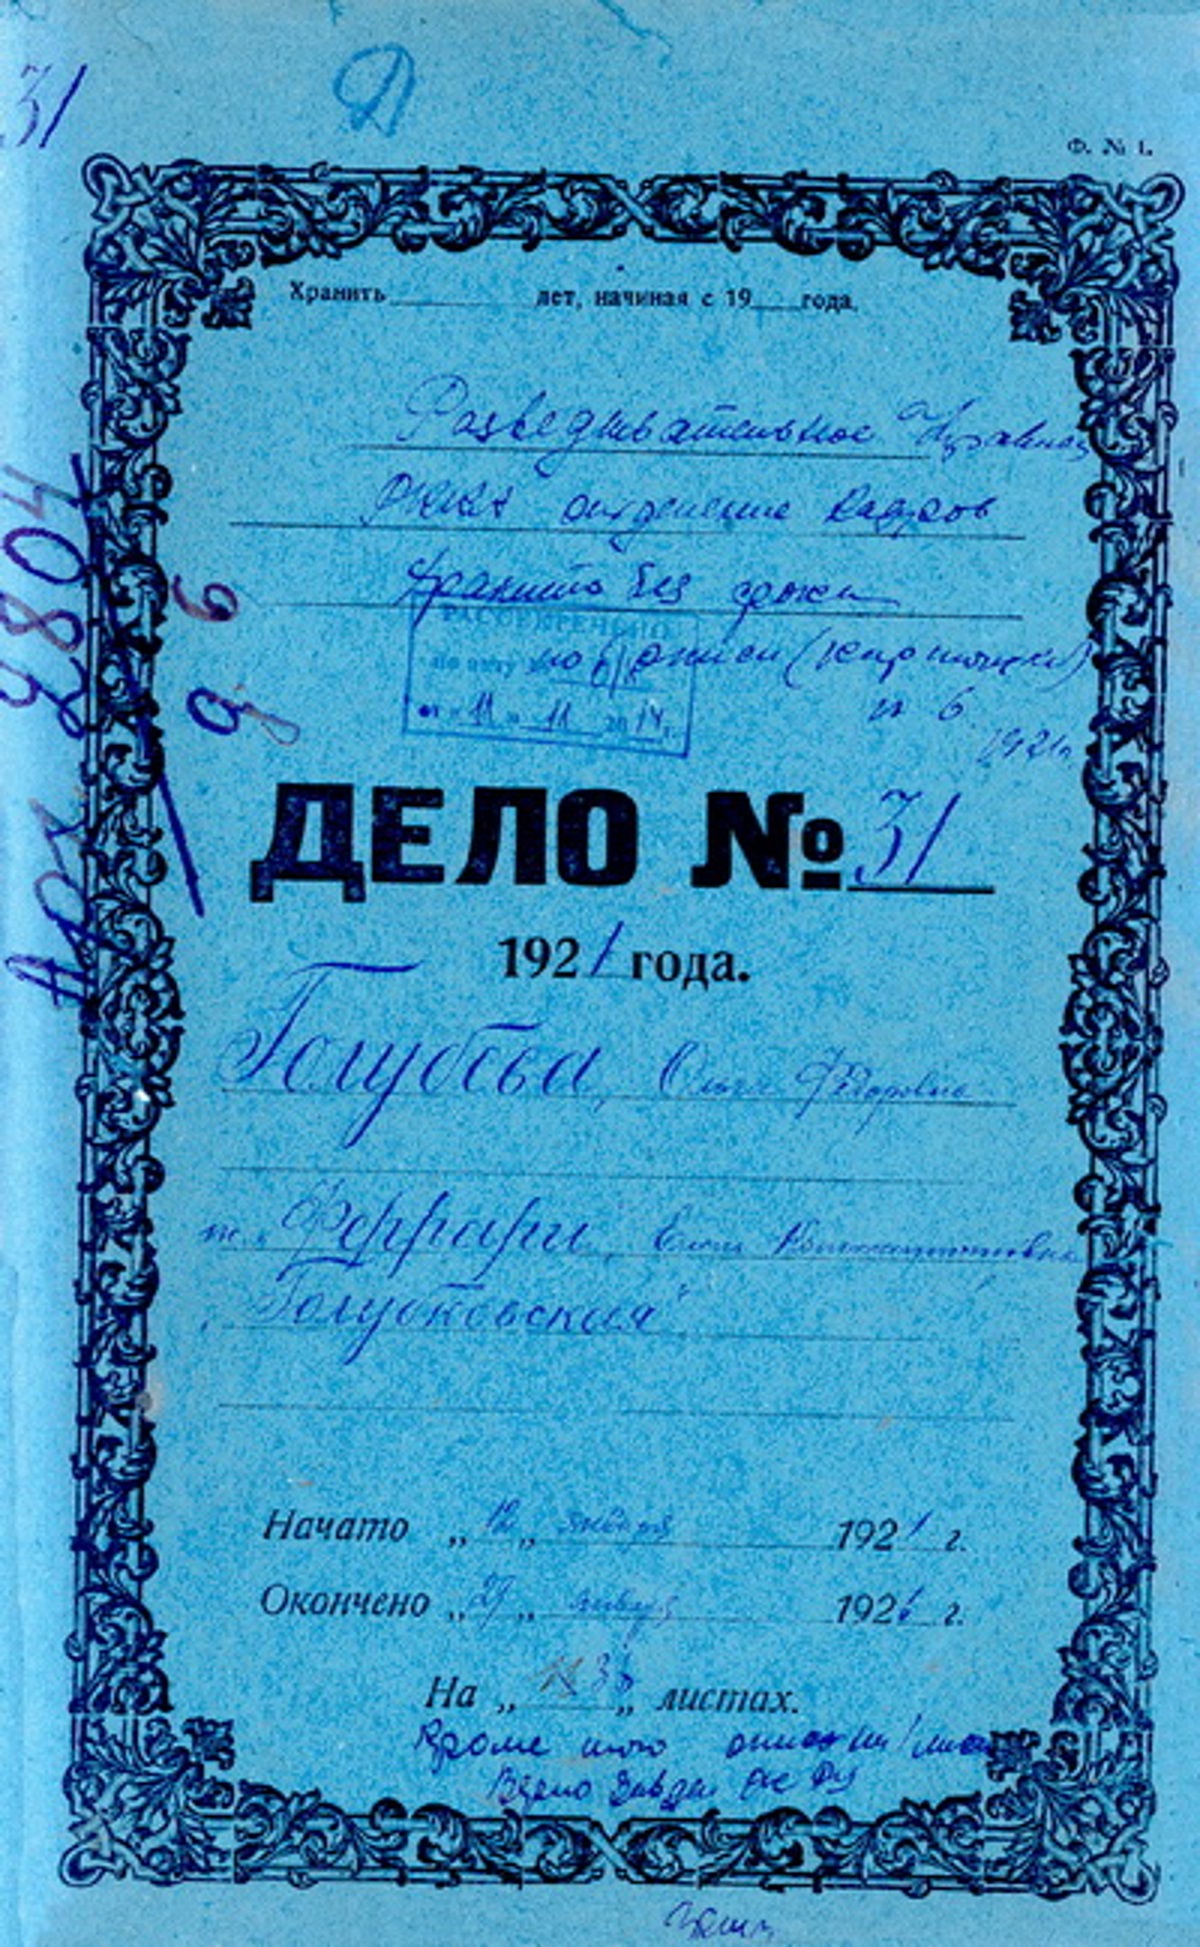 31
Д
Ф. № 1.
Хранить лет, начиная с 19 года.
Разведывательное Управление
РККА отделение кадров
Хранить без срока
РАССЕКРЕЧЕНО
по акту № 6/
по описи (картотеки)
от " 11 " 11 2014 г.
№ 6
1921г
Арх 8804
96
ДЕЛО № 31
1921 года.
Голубева, Ольга Федоровна
"Феррари, Елена Константиновна
"Голубковская"
Начато „ 12 „ января 1921 г.
Окончено „ 29 „ января 1926 г.
На „ 36 „ листах.
Кроме того описи
Верно